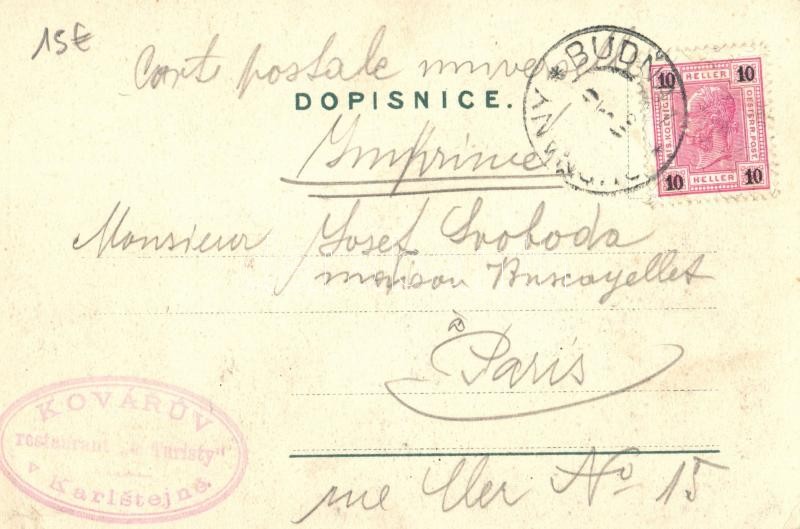 15€
Carte postale
DOPISNICE.
Imprimé
Monsieur Josef Svoboda
maison
à
Paris
rue Cler No 15
BUDŇ
10 HELLER 10
KAIS. KOENIGL. OESTERR. POST.
10 HELLER 10
KOVÁŘŮV
restaurant „u Turisty“
v Karlštejně.